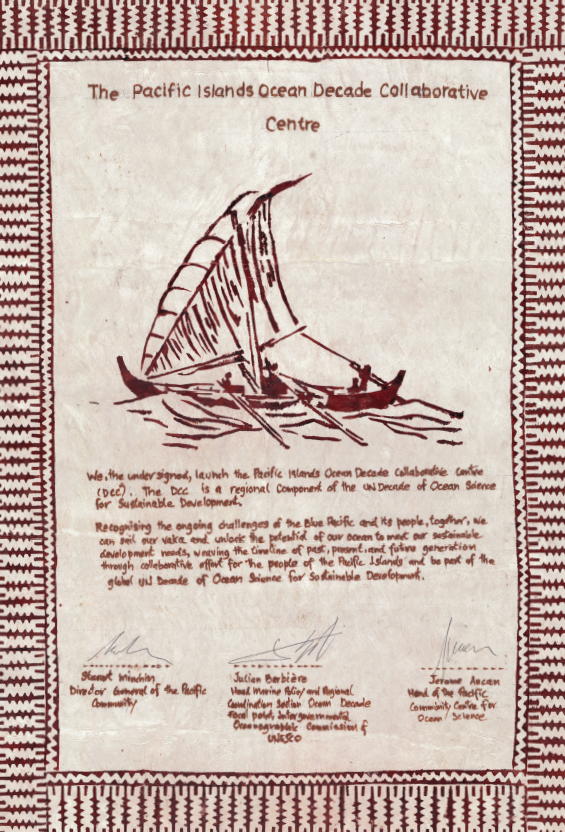 The Pacific Islands Ocean Decade Collaborative
Centre
We, the undersigned, launch the Pacific Islands Ocean Decade Collaborative Centre
(DCC). The DCC is a regional Component of the UN Decade of Ocean Science
for Sustainable Development.
Recognising the ongoing challenges of the Blue Pacific and its people, together, we
can sail our vaka and unlock the potential of our ocean to meet our sustainable
development needs, weaving the timeline of past, present, and future generation
through collaborative effort for the people of the Pacific Islands and be part of the
global UN Decade of Ocean Science for Sustainable Development.
Stuart Minchin
Director General of the Pacific
Community
Julian Barbière
Head Marine Policy and Regional
Coordination Section Ocean Decade
Focal point, Intergovernmental
Oceanographic Commission of
UNESCO
Jerome Aucan
Head of the Pacific
Community Centre for
Ocean Science